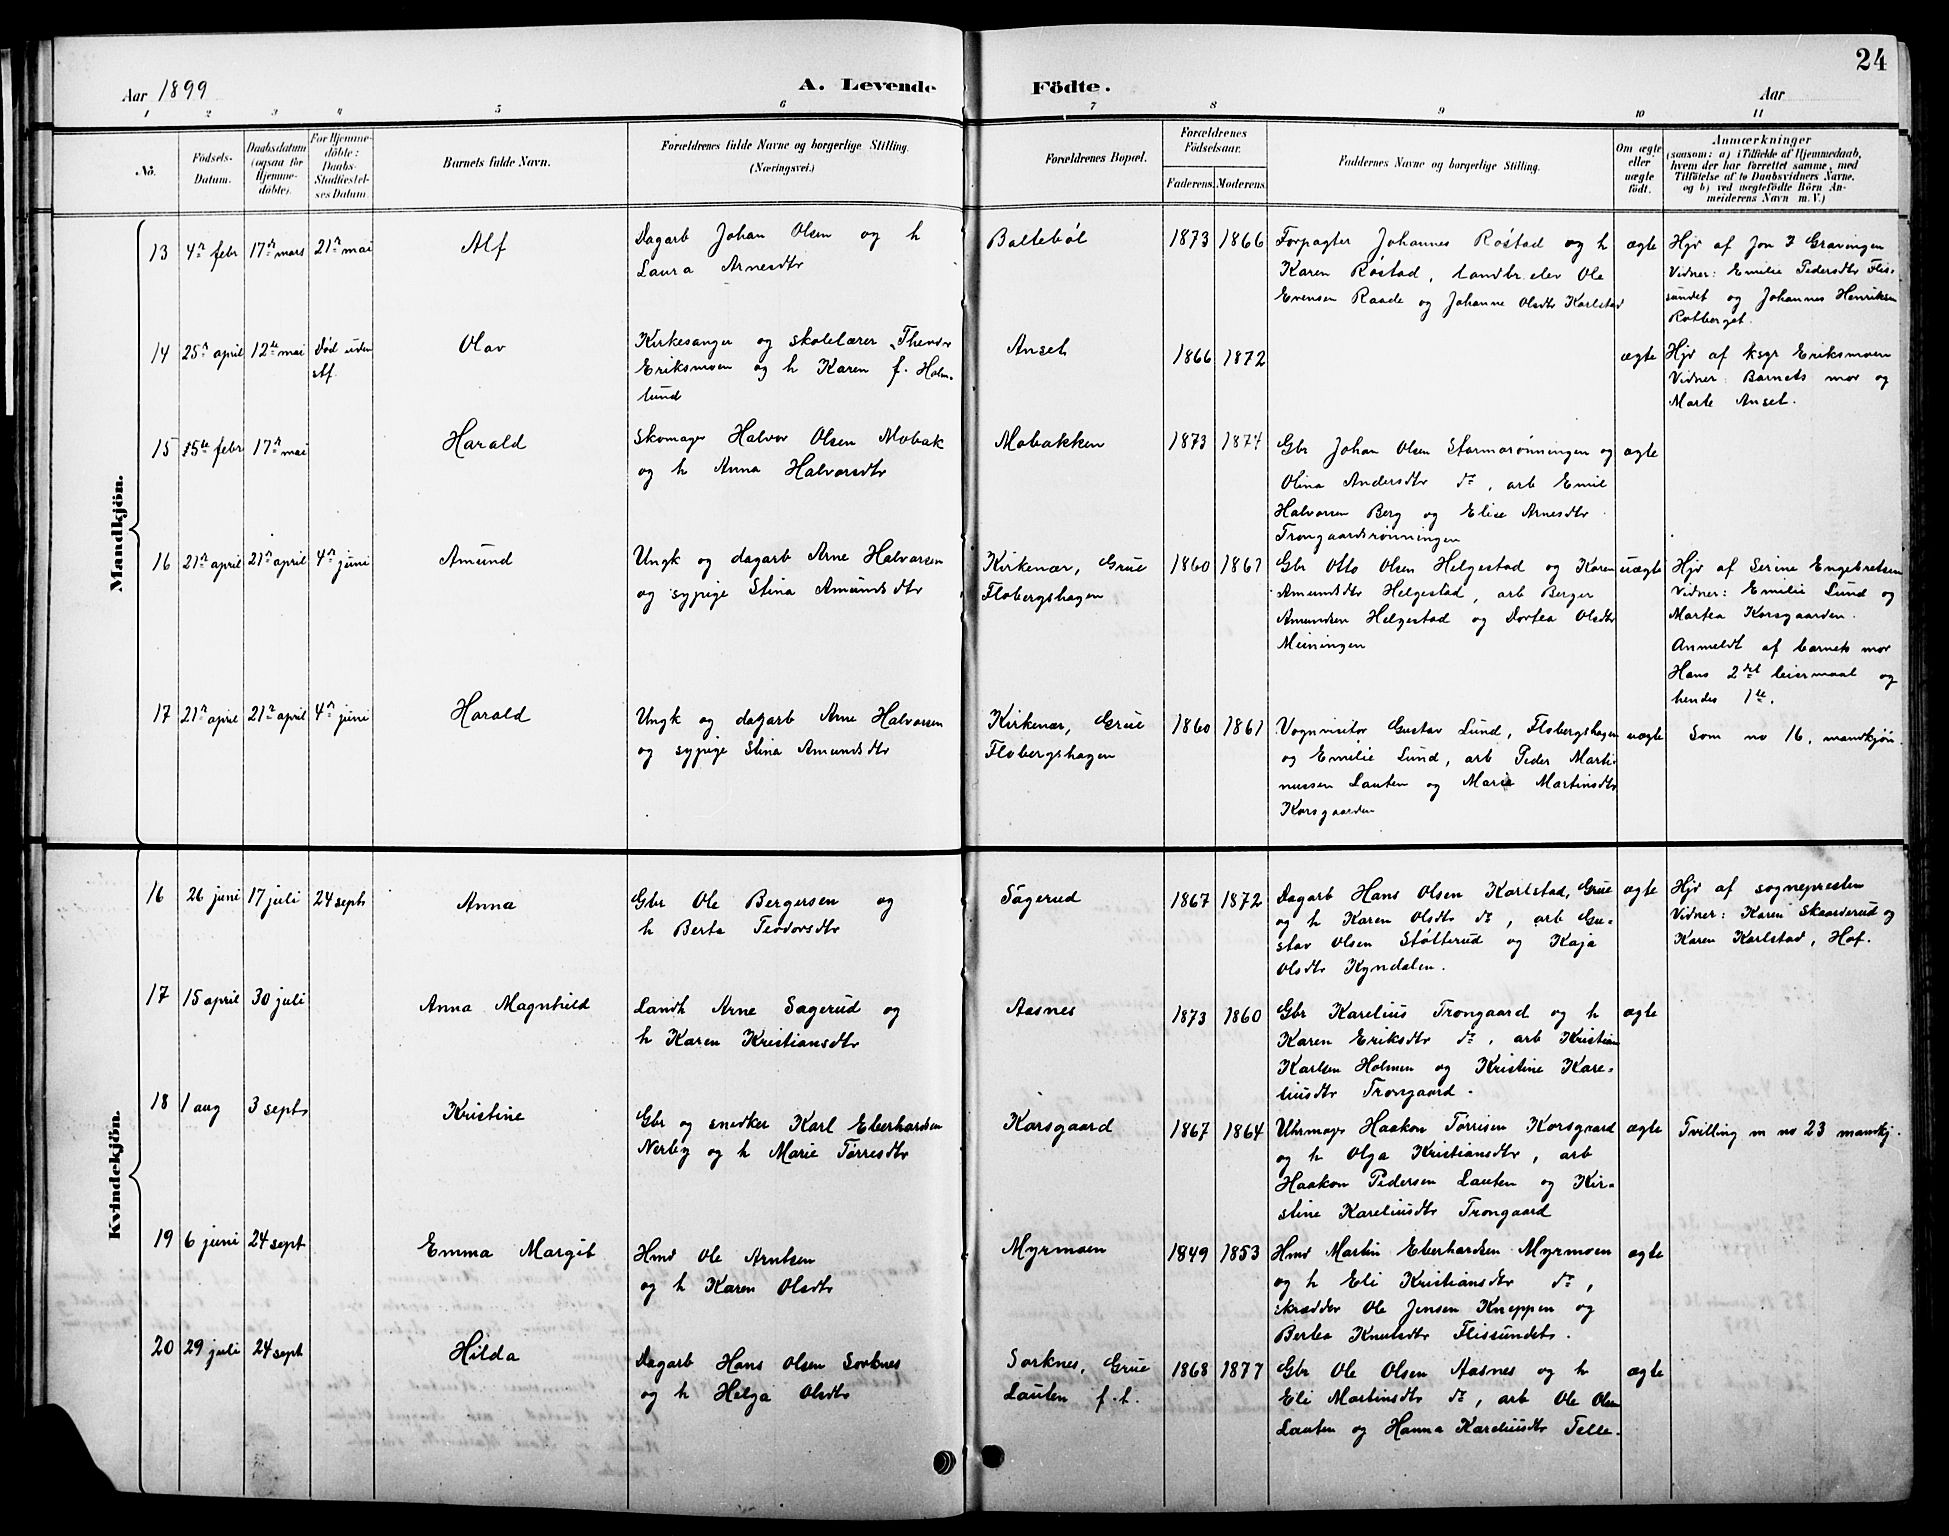 24
Aar 1899
A. Levende Födte.
Aar
1 2 3 4 5 6 7 8 9 10 11
No.
Födsels-
Datum.
Daabsdatum
(ogsaa for
Hjemme-
döbte).
For Hjemme-
döbte:
Daabs-
Stadfæstel-
ses Datum.
Barnets fulde Navn.
Forældrenes fulde Navne og borgerlige Stilling.
(Næringsvei.)
Forældrenes Bopæl.
Forældrenes
Födselsaar.
Faderens. Moderens.
Faddernes Navne og borgerlige Stilling.
Om ægte
eller
uægte
födt.
Anmærkninger
(saasom: a) i Tilfælde af Hjemmedaab,
hvem der har forrettet samme, med
Tilföielse af to Daabsvidners Navne.
og b) ved uægtefödte Börn An-
meiderens Navn m. V.)
Mandkjön.
13 4de febr 17de mars 21de mai
Alf
Dagarb Johan Olsen og h
Laura Arnesdtr
Baltebøl
1873 1866
Forpagter Johannes Røstad og h
Karen Røstad, landbr.elev Ole
Evensen Raade og Johanne Olsdtr Karlstad
ægte
Hjd af Jon J Gravingen
Vidner: Emilie Pedersdtr Flis-
sundet og Johannes Henriksen
Rotberget.
14 25de april 12te mai Død uden
st.f.
Olav
Kirkesanger og skolelærer Thendor
Eriksmoen og h Karen f. Holm-
lund
Anset
1866 1872
ægte
Hjd af ksgr Eriksmoen
Vidner: Barnets mor og
Marte Anset.
15 15de febr 17de mai
Harald
Skomager Halvor Olsen Mobak
og h Anna Halvorsdtr
Mobakken
1873 1874
Gbr Johan Olsen Stormorønningen og
Olina Andersdtr do, arb Emil
Halvorsen Berg og Elise Arnesdtr
Trongaardsrønningen
ægte
16 21de april 21de april 4de juni
Amund
Ungk og dagarb Arne Halvorsen
og sypige Stina Amundsdtr
Kirkenær, Grue
Flobergshagen
1860 1861
Gbr Otto Olsen Helgestad og Karen
Amundsdtr Helgestad, arb Berger
Amundsen Helgestad og Dortea Olsdtr
Meiningen
uægte
Hjd af Serine Engebretsen
Vidner: Emilie Lund og
Martea Korsgaarden.
Anmeldt af barnets mor
Hans 2det leiermaal og
hendes 1te.
17 21de april 21de april 4de juni
Harald
Ungk og dagarb Arne Halvorsen
og sypige Stina Amundsdtr
Kirkenær, Grue
Flobergshagen
1860 1861
Vognvisitør Gustav Lund, Flobergshagen
og Emilie Lund, arb Peder Marti-
nussen Lauten og Marie Martinsdtr
Korsgaarden
uægte
Som no 16, mandkjøn.
Kvindekjön.
16 26 juni 17 juli 24 sept
Anna
Gbr Ole Bergersen og
h Berta Teodorsdtr
Sagerud
1867 1872
Dagarb Hans Olsen Karlstad, Grue
og h Karen Olsdtr do, arb Gu-
stav Olsen Støtterud og Kaja
Olsdtr Kyndalen.
ægte
Hjd af sognepresten
Vidner: Karen Skaarderud og
Karen Karlstad, Hof.
17 15 april 30 juli
Anna Magnhild
Landh Arne Sagerud og
h Karen Kristiansdtr
Aasnes
1873 1860
Gbr Karelius Trongaard og h
Karen Eriksdtr do, arb Kristian
Karlsen Holmen og Kristine Kare-
liusdtr Trongaard.
ægte
18 1 aug 3 sept
Kristine
Gbr og snedker Karl Eberhardsen
Nerby og h Marie Tørresdtr
Korsgaard
1867 1864
Uhrmager Haakon Tørrisen Korsgaard
og h Olga Kristiansdtr, arb
Haakon Pedersen Lauten og Kir-
stine Kareliusdtr Trongaard
ægte
Tvilling m no 23 mandkj.
19 6 juni 24 sept
Emma Margit
Hmd Ole Arntsen
og h Karen Olsdtr
Myrmoen
1849 1853
Hmd Martin Eberhardsen Myrmoen
og h Eli Kristiansdtr do,
skrædder Ole Jensen Kneppen og
Bertea Knutsdtr Flissundet.
ægte
20 29 juli 24 sept
Hilda
Dagarb Hans Olsen Sorknes
og h Helga Olsdtr
Sorknes, Grue
Lauten f.t.
1868 1877
Gbr Ole Olsen Aasnes og h
Eli Martinsdtr do, arb Ole Olsen
Lauten og Hanna Kareliusdtr Telle.
ægte